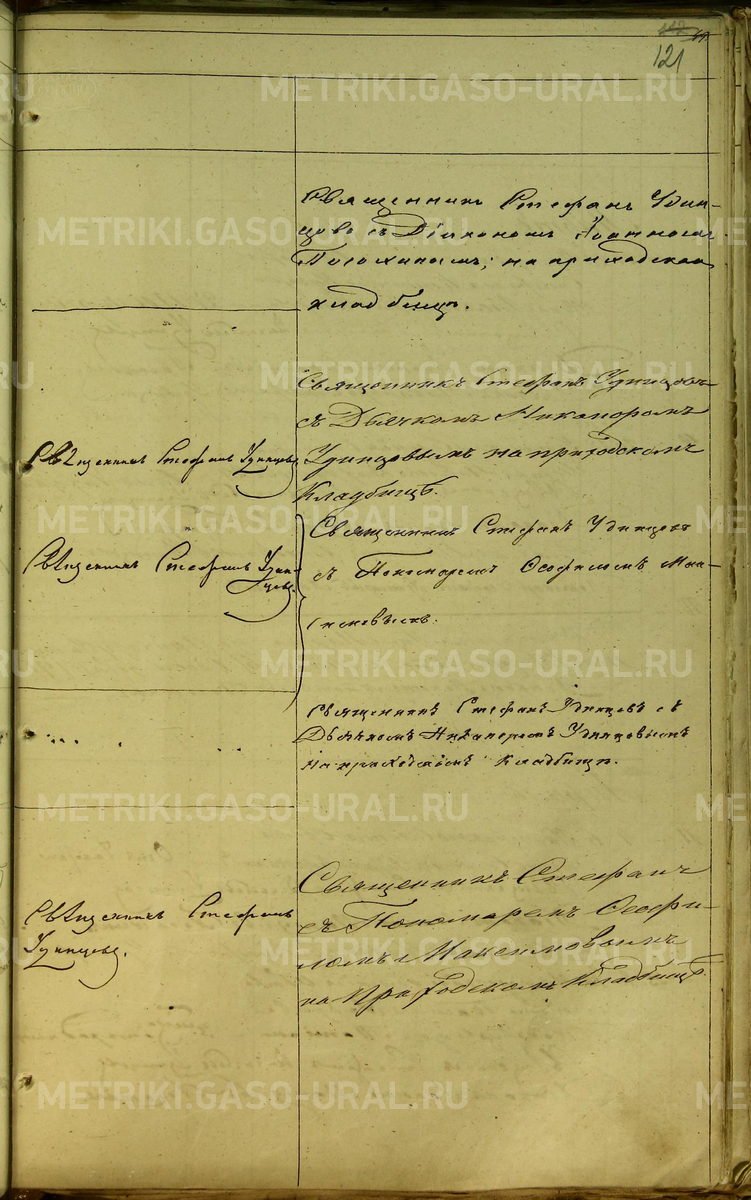 121
Священникъ Стефанъ Удин-
цовъ съ Діакономъ Іоанномъ
на приходскомъ
кладбищѣ.
Священникъ Стефанъ Удинцовъ
съ Дьячкомъ Никаноромъ
Удинцовымъ на приходскомъ
Кладбищѣ.
Священникъ Стефанъ Удинцовъ
Священникъ Стефанъ Удинцовъ
съ Пономаремъ Ѳеофиломъ Мак-
симовымъ.
Священникъ Стефанъ Удин-
цовъ.
Священникъ Стефанъ Удинцовъ съ
Дьячкомъ Никаноромъ Удинцовымъ
на приходскомъ Кладбищѣ.
Священникъ Стефанъ
съ Пономаремъ Ѳеофи-
ломъ Максимовымъ
на Приходскомъ Кладбищѣ.
Священникъ Стефанъ
Удинцовъ.
METRIKI.GASO-URAL.RU